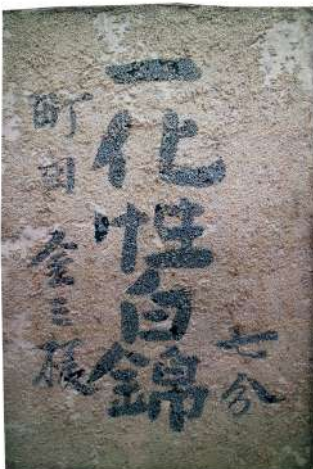 一化性白錦
七分
町田金三様